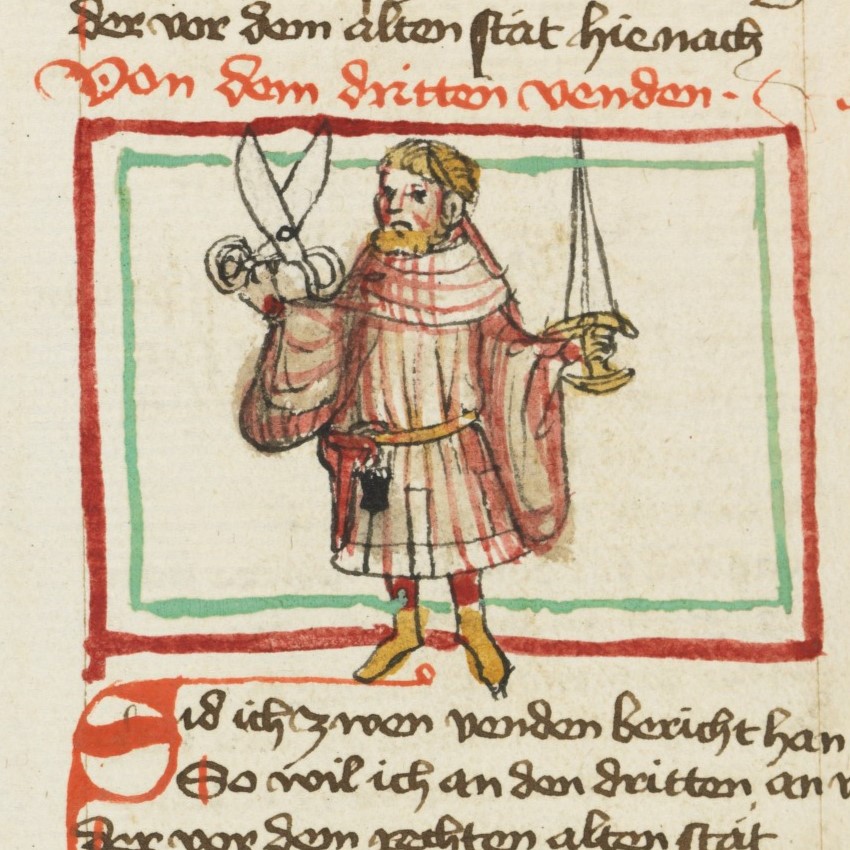 der vor dem alten stat hie nach
Von dem dritten venden.
Sid ich zwen venden bericht han
So wil ich an den dritten an
der vor dem rechten alten stat